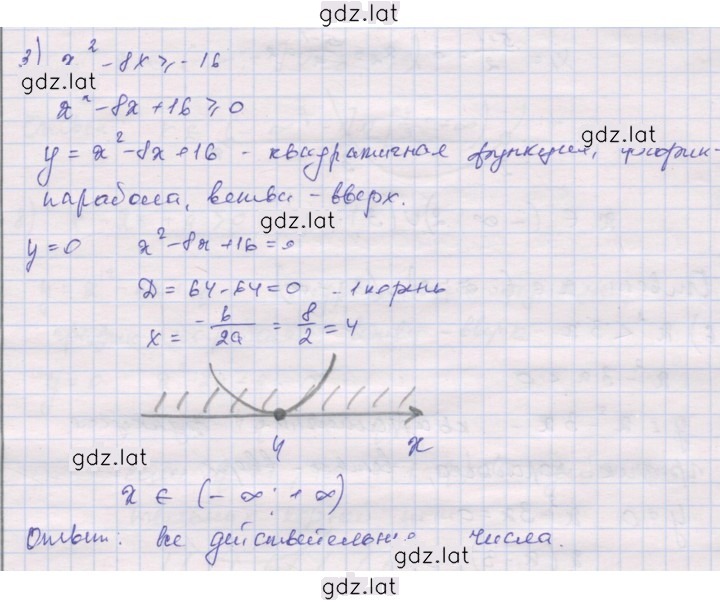 gdz.lat
3) x² - 8x ≥ -16
gdz.lat
x² - 8x + 16 ≥ 0
gdz.lat
y = x² - 8x + 16 - квадратичная функция, график -
парабола, ветви - вверх.
gdz.lat
y = 0 x² - 8x + 16 = 0
D = 64 - 64 = 0 - 1 корень
x = - b/2a = 8/2 = 4
4 x
gdz.lat
x ∈ (- ∞; + ∞)
Ответ: все действительные числа.
gdz.lat
gdz.lat